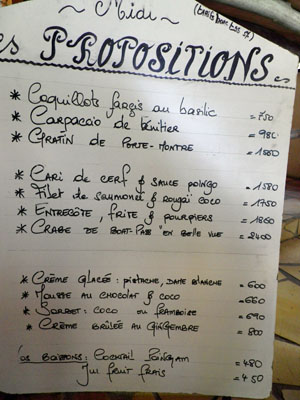 ~ Midi ~
es PROPOSITIONS
* Coquillots farçis au basilic = 750
* Carpaccio de bénitier = 980
* GRATIN DE PORTE-MONTRE = 1550
* CARI DE CERF & SAUCE POINGO = 1580
* Filet de saumonée & rougaï coco = 1750
* ENTRECÔTE, FRITE & POURPIERS = 1860
* CRABE DE BOAT-PASS "EN BELLE VUE = 2400
* CRÈME GLACÉE : PISTACHE, DAME BLANCHE = 600
* MOUSSE AU CHOCOLAT & COCO = 660
* SORBET : COCO OU FRAMBOISE = 690
* CRÈME BRÛLÉE AU GINGEMBRE = 800
os BOISSONS : COCKTAIL = 480
JUS FRUIT FRAIS = 450